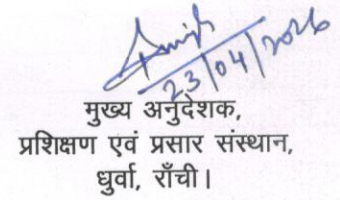 23/04/2026
मुख्य अनुदेशक,
प्रशिक्षण एवं प्रसार संस्थान,
धुर्वा, राँची।